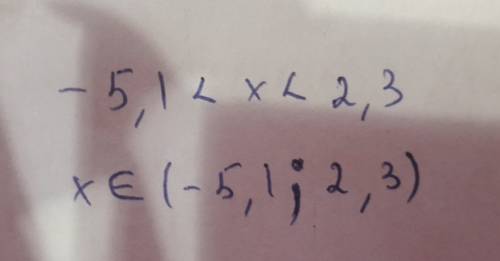 - 5,1 < x < 2,3
x ∈ (-5,1; 2,3)